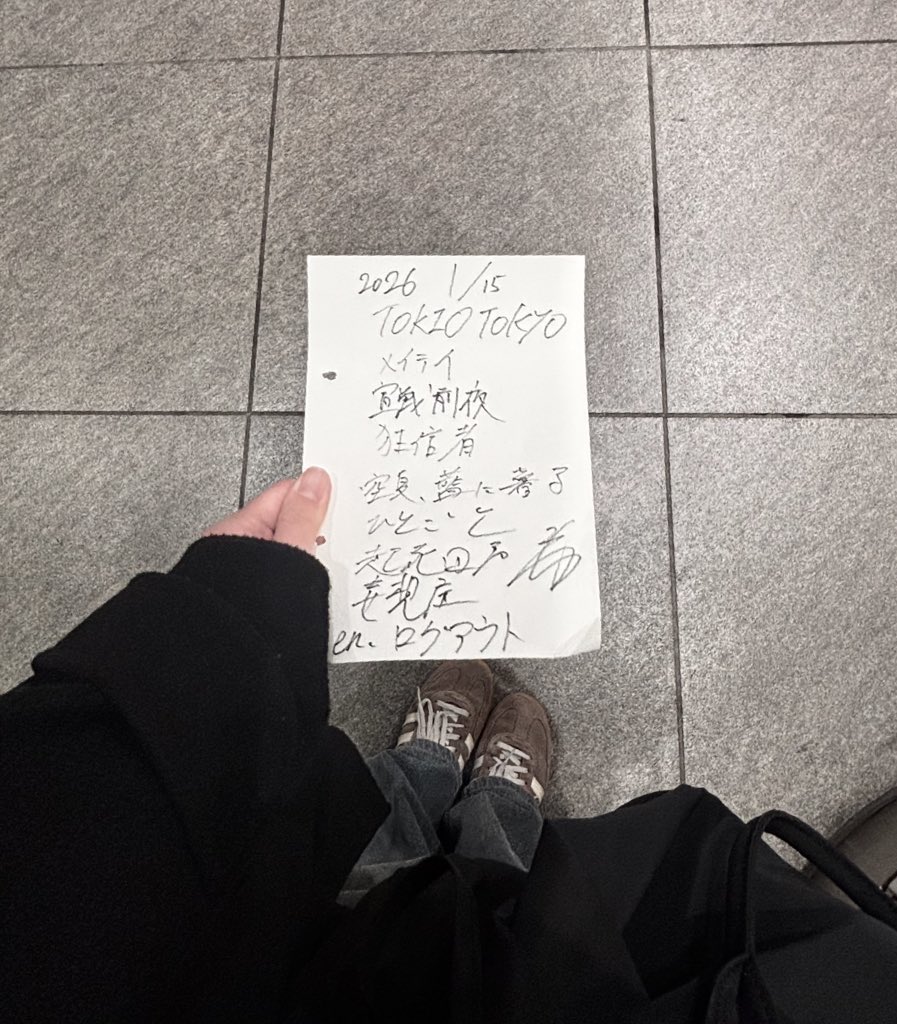 2026 1/15
TOKIO TOKYO
メイテイ
宣戦前夜
狂信者
空身、藍に着る
ひとごと
起死回生
妄現症
en. ログアウト